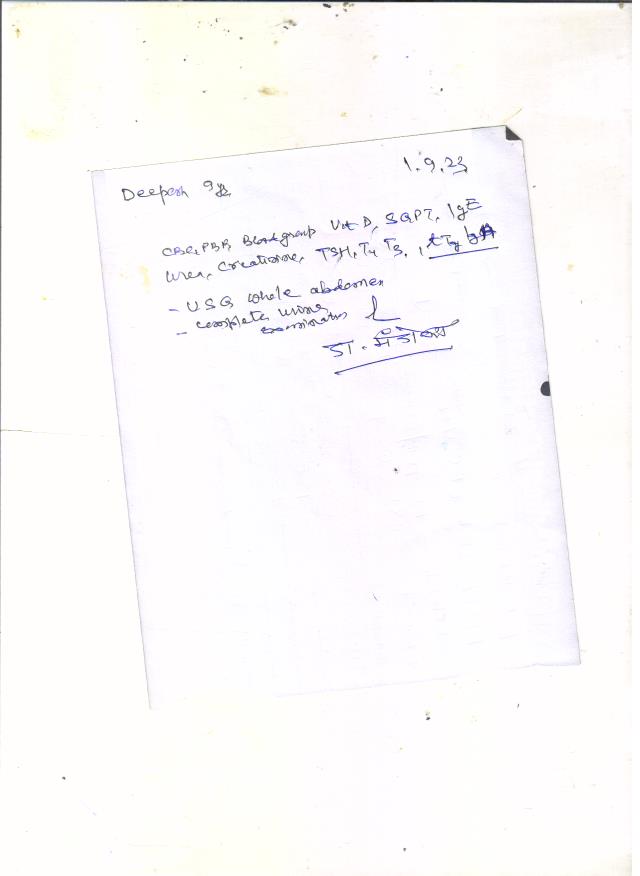 1.9.23
Deepesh 9
CBC, PBF, Blood group Vit D, SGPT, IgE
Urea, Creatinine, TSH, T4 T3, tTg IgA
- USG whole abdomen
- complete urine
examination
डा.